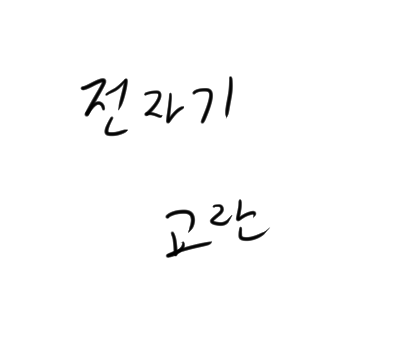 전자기
교란